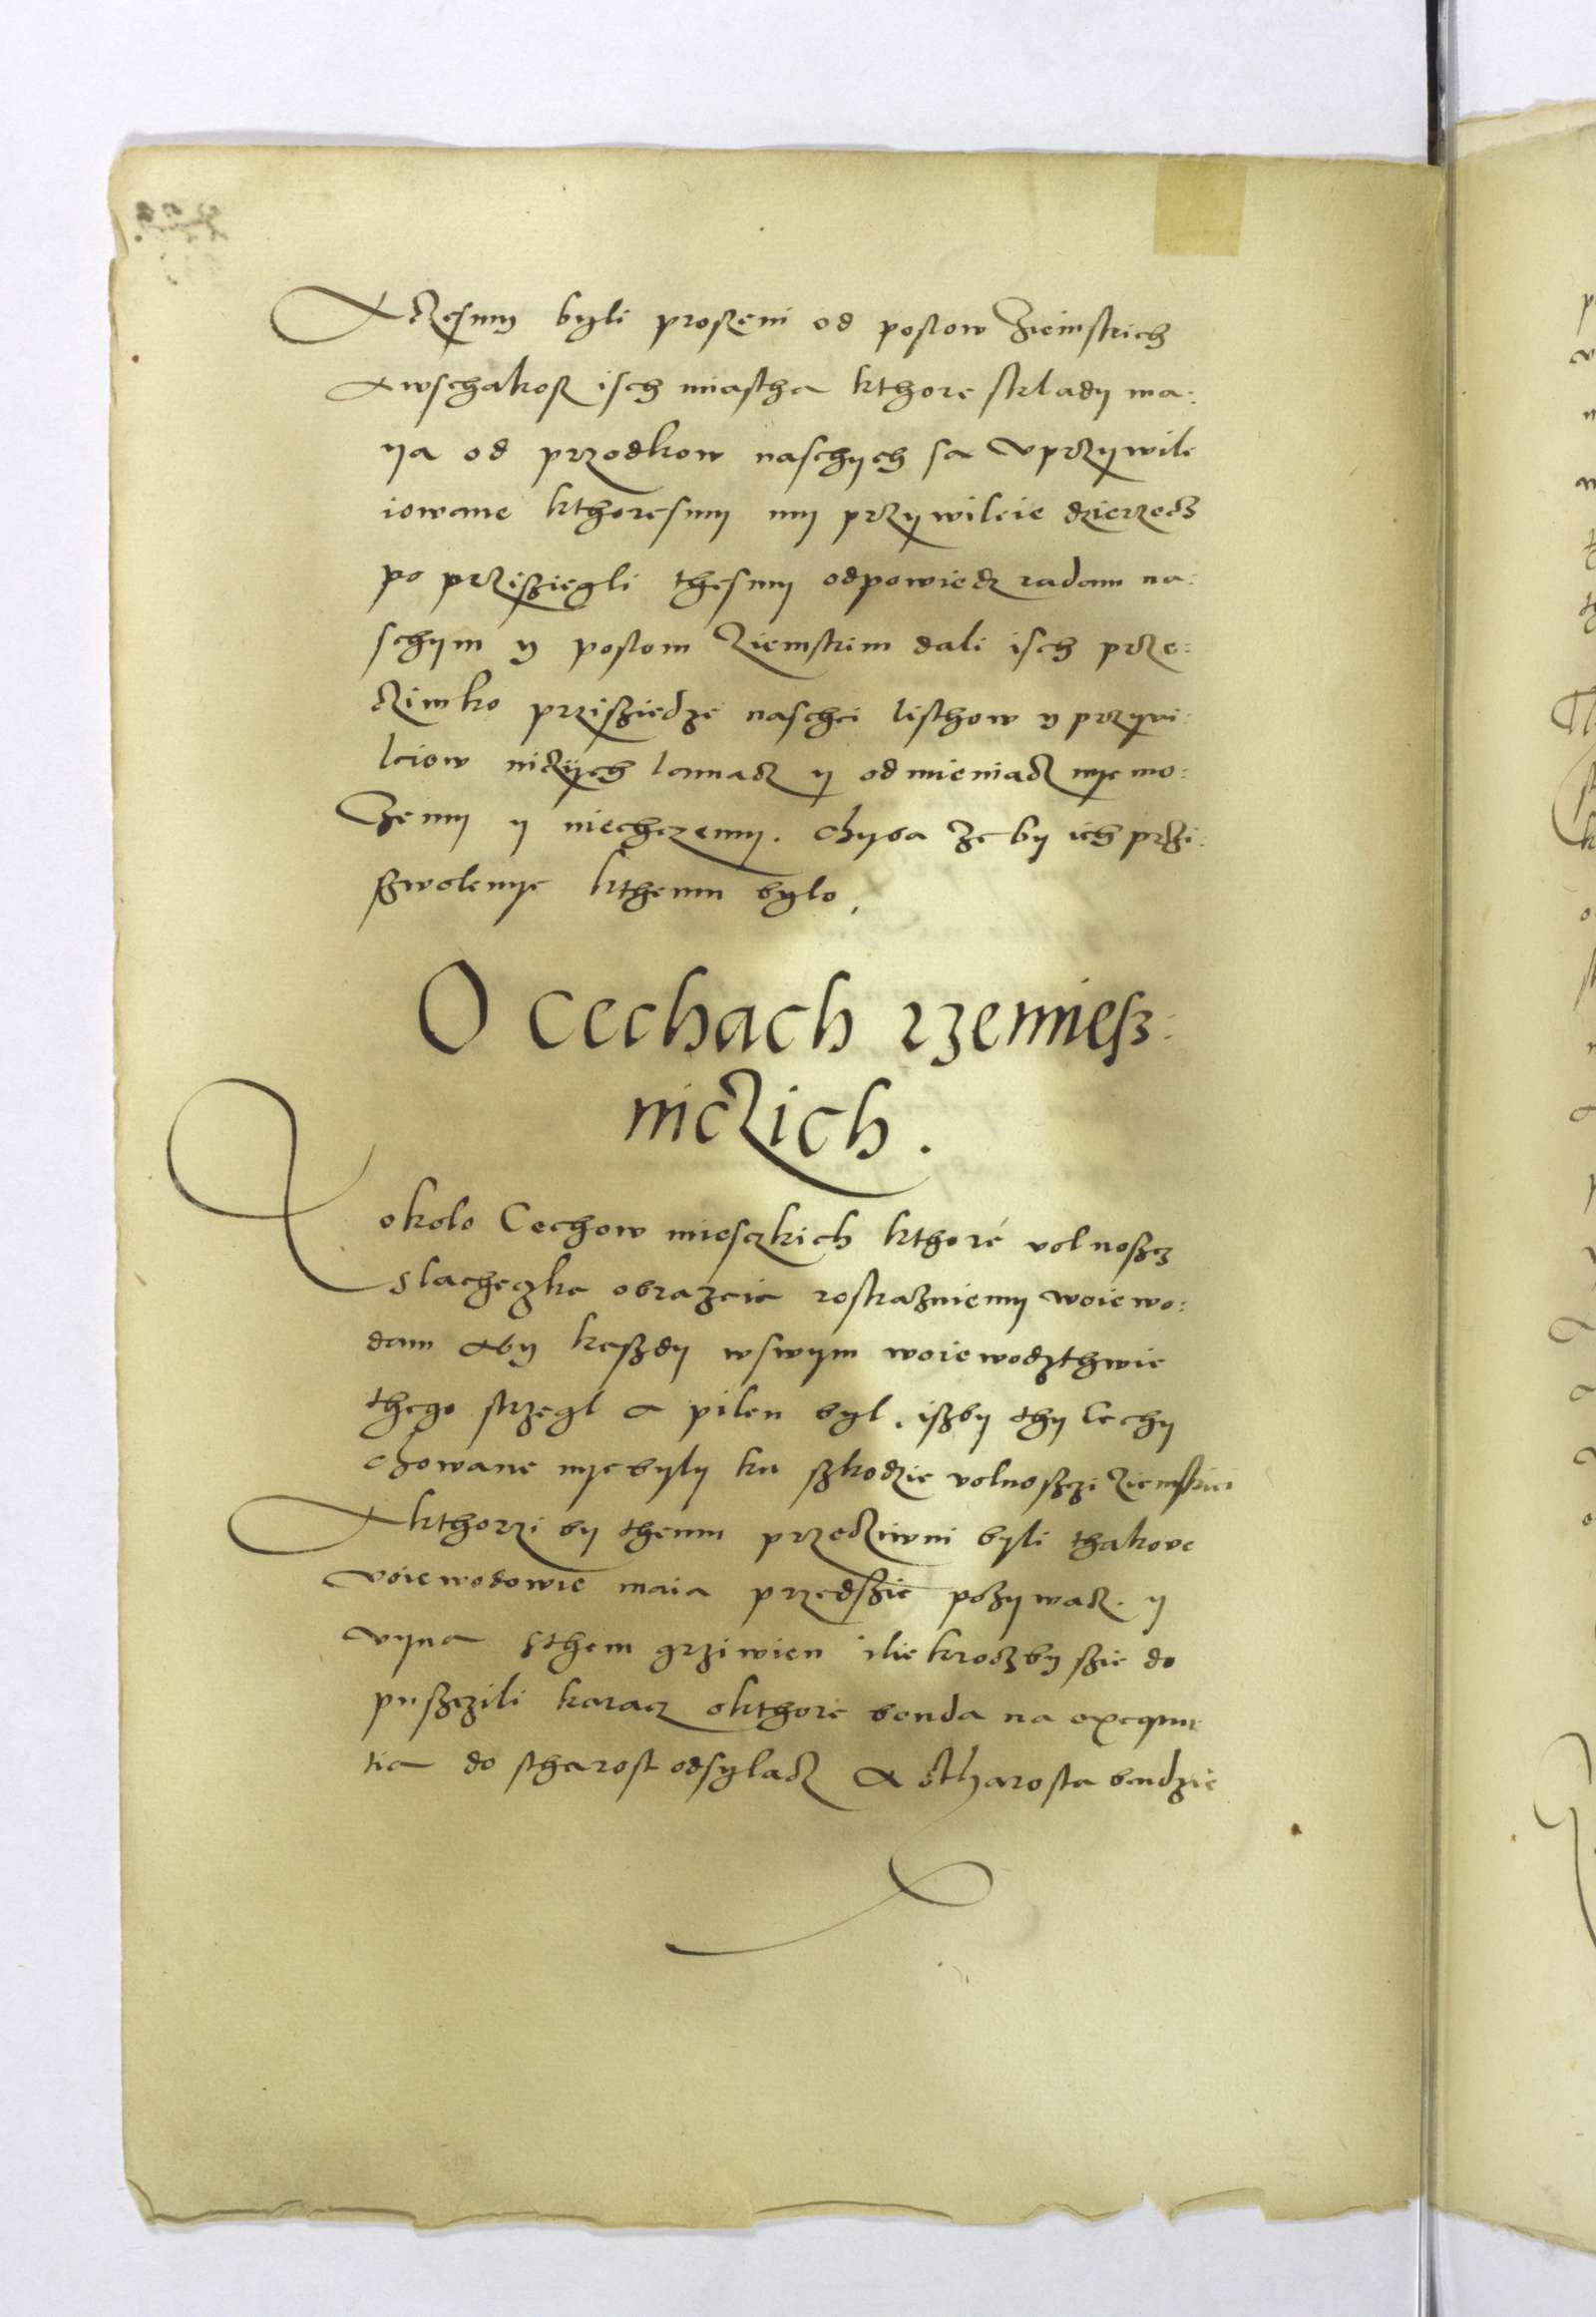 A czesmy byli proszeni od poslow Ziemskich
A wschakosz isch miastha kthore sklady ma:
ya od przodkow naschych sa vprzywile
iowane kthoresmy my przywileie dzierzecz
po przisziegli thesmy odpowiedz radam na:
schym y poslom Ziemskim dali isch prze:
cziwko przisziedze naschei listhow y przywi:
leiow niczijch lamacz y odmieniacz nye mo:
Zemy y niechczemy. chyba ze by ich przi:
szwolenye kthemu bylo.
O cechach rzemiesz:
niczich.
Y okolo Cechow miesczkich kthore volnoszcz
slacheczka obrazaia roskazuiemy woiewo:
dam aby kaszdy wswym woiewodzthwie
thego strzegl a pilen byl. iszby thy Cechy
chowane nye byly ku szkodzie volnoszczi ziemskiei
A kthorzi by themu przecziwni byli thakove
voiewodowie maia przedszie pozywacz. y
vyna sthem grziwien ilie kroczby szie do
pusczili karacz okthore benda na exequu
tia do stharost odsylacz A stharosta bendzie